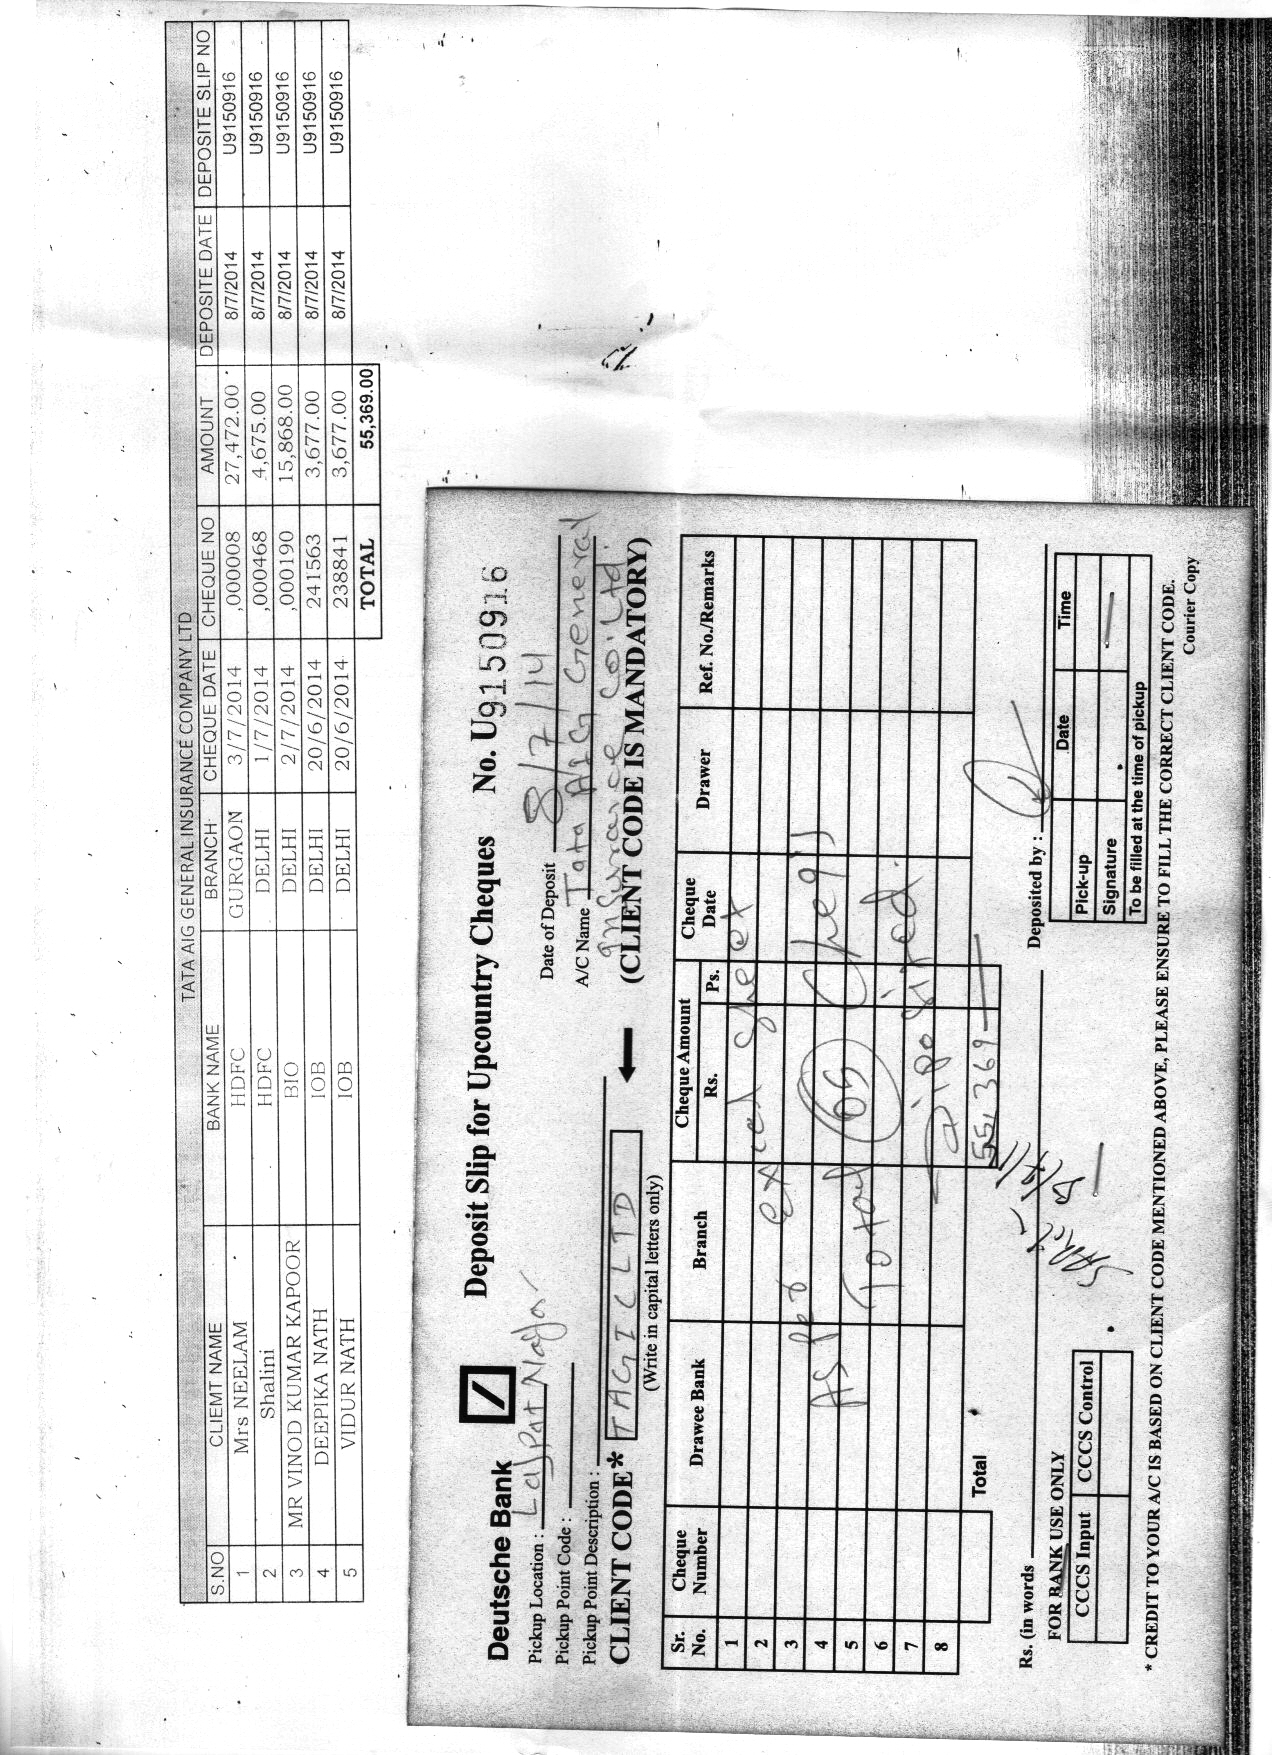 TATA AIG GENERAL INSURANCE COMPANY LTD
S.NO CLIEMT NAME BANK NAME BRANCH CHEQUE DATE CHEQUE NO AMOUNT DEPOSITE DATE DEPOSITE SLIP NO
1 Mrs NEELAM HDFC GURGAON 3/7/2014 ,000008 27,472.00 8/7/2014 U9150916
2 Shalini HDFC DELHI 1/7/2014 ,000468 4,675.00 8/7/2014 U9150916
3 MR VINOD KUMAR KAPOOR BIO DELHI 2/7/2014 ,000190 15,868.00 8/7/2014 U9150916
4 DEEPIKA NATH IOB DELHI 20/6/2014 241563 3,677.00 8/7/2014 U9150916
5 VIDUR NATH IOB DELHI 20/6/2014 238841 3,677.00 8/7/2014 U9150916
TOTAL 55,369.00
Deutsche Bank Deposit Slip for Upcountry Cheques No. U9150916
Pickup Location : Lajpat Nagar Date of Deposit 8/7/14
Pickup Point Code : A/C Name Tata AIG General
Pickup Point Description : Insurance Co. Ltd.
CLIENT CODE* TAGICLTD (CLIENT CODE IS MANDATORY)
(Write in capital letters only)
Sr. No. Cheque Number Drawee Bank Branch Cheque Amount Cheque Date Drawer Ref. No./Remarks
Rs. Ps.
1
2
3
4
5
6
7
8
As per excel sheet
(Total 05 Cheq's)
Total 55,369
Rs. (in words Deposited by :
FOR BANK USE ONLY
CCCS Input CCCS Control
Pick-up Date Time
Signature
To be filled at the time of pickup
* CREDIT TO YOUR A/C IS BASED ON CLIENT CODE MENTIONED ABOVE, PLEASE ENSURE TO FILL THE CORRECT CLIENT CODE.
Courier Copy